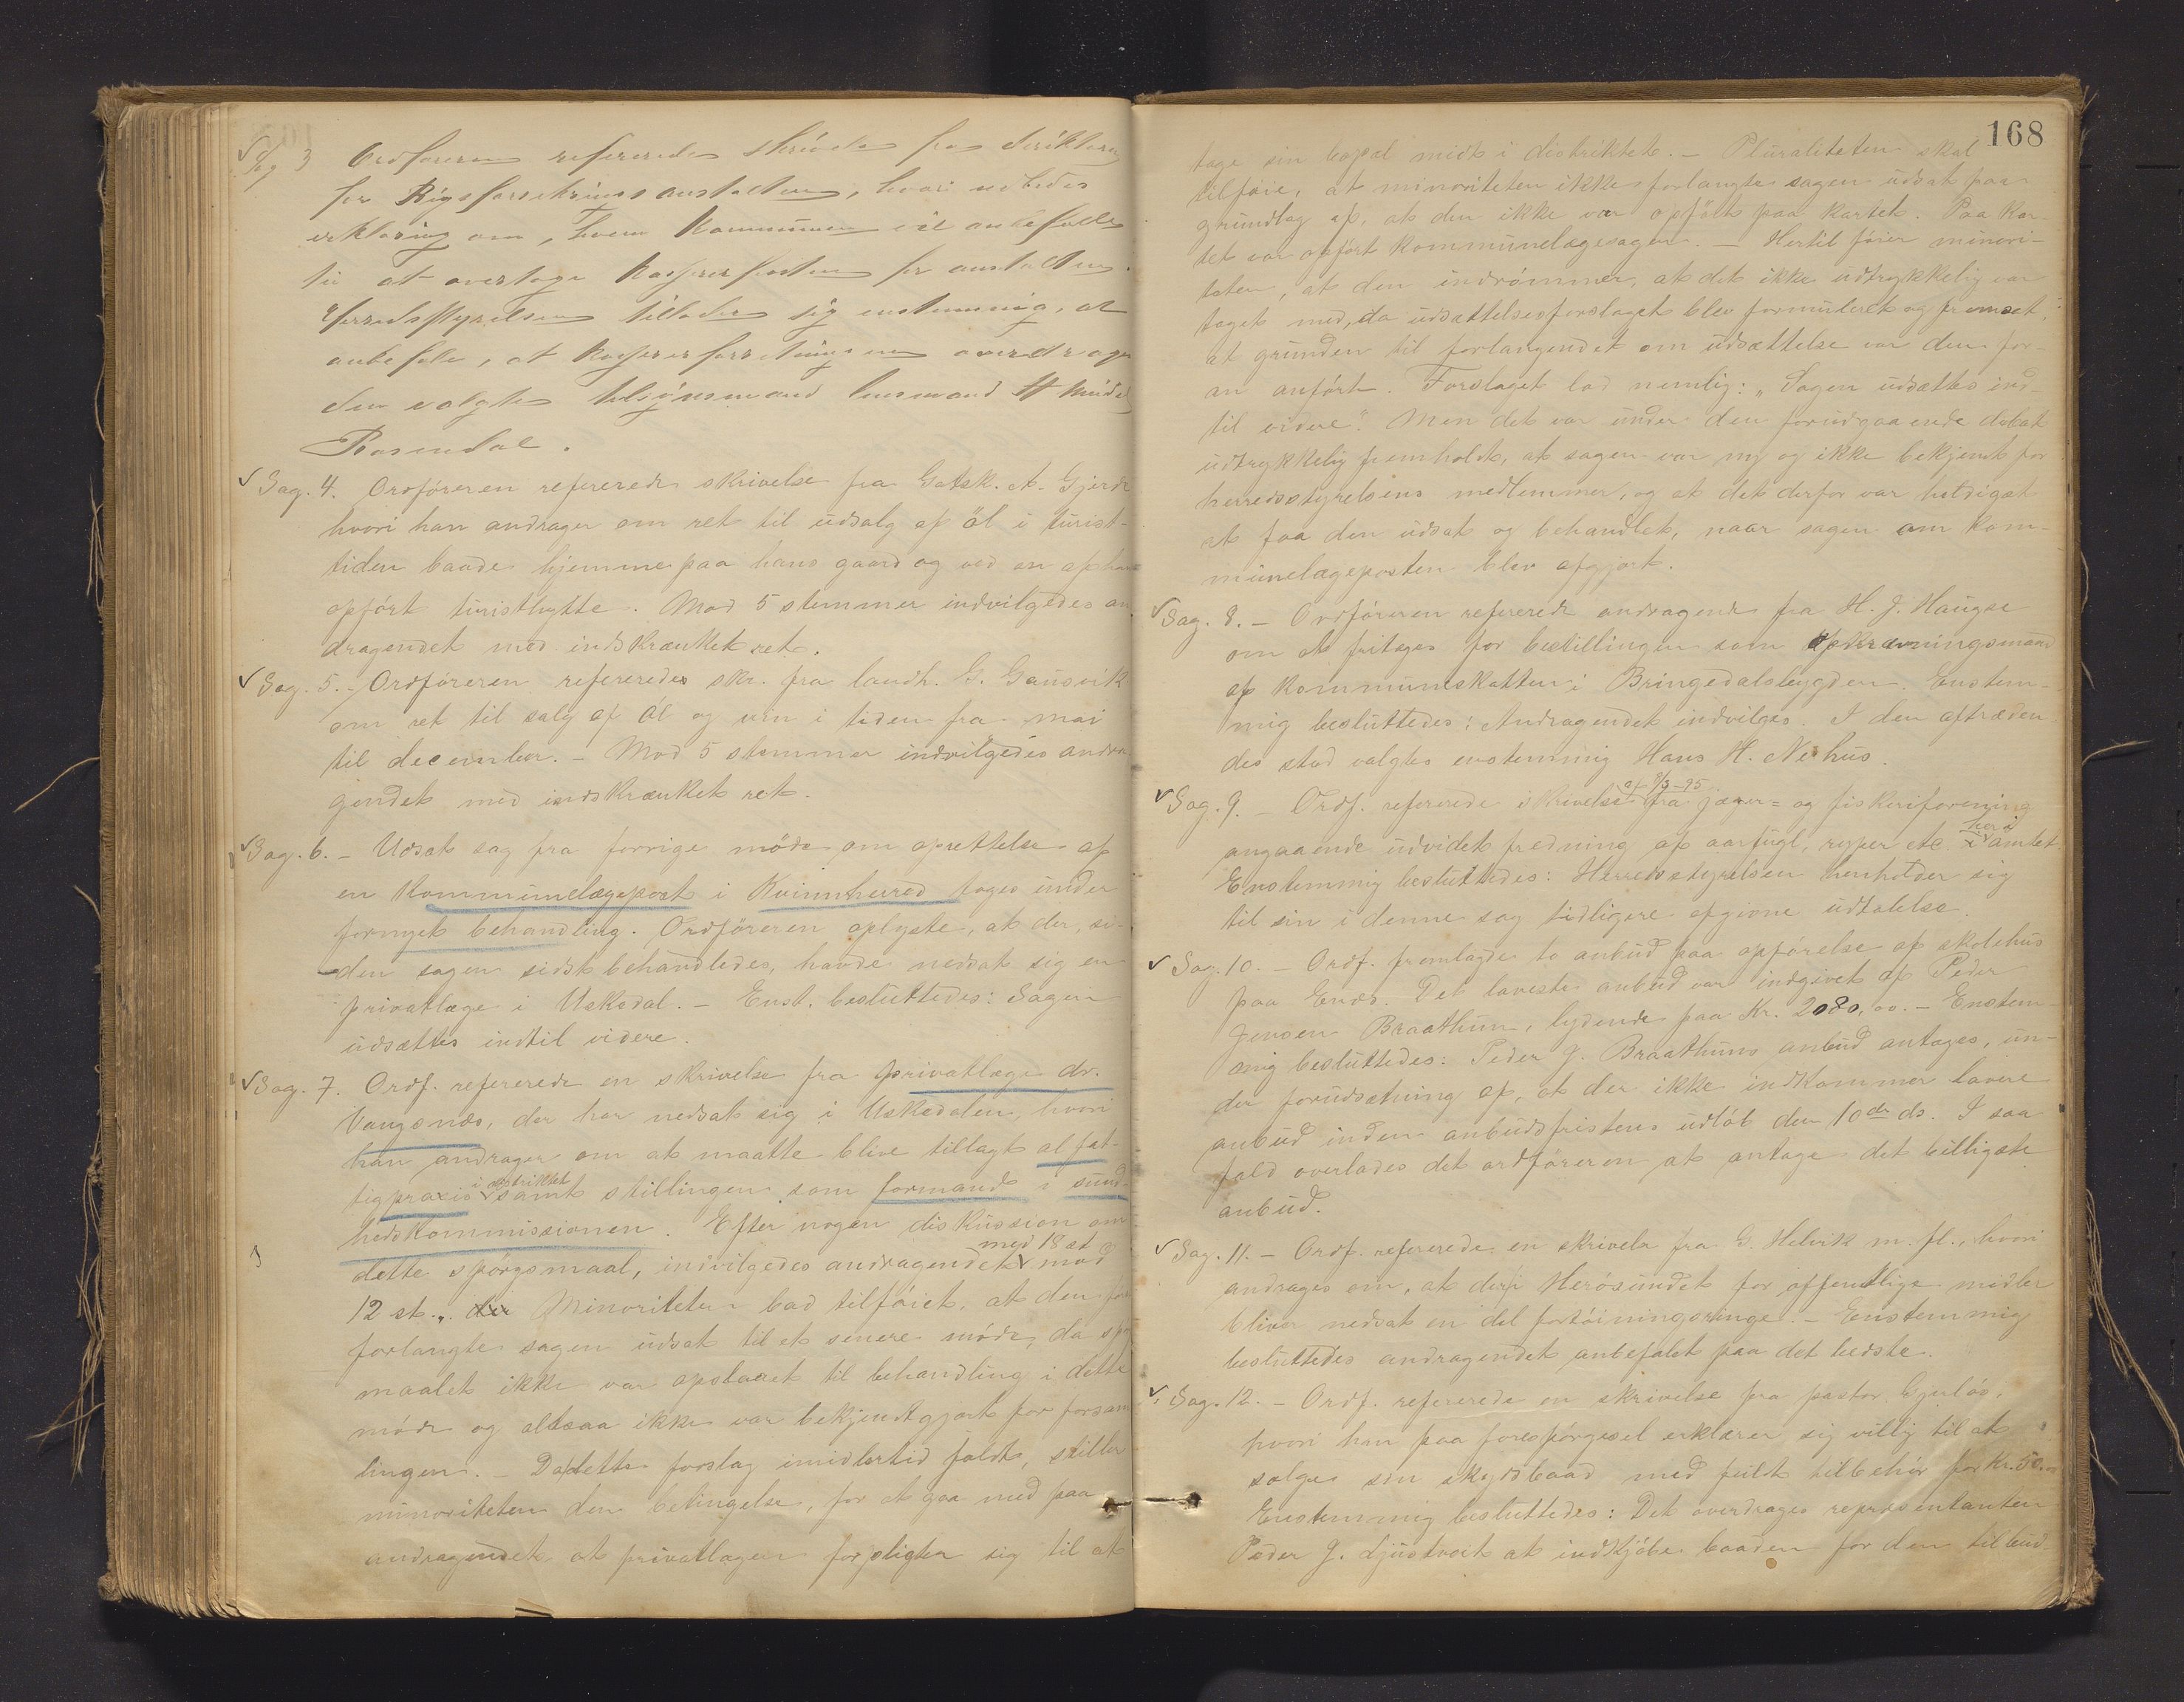 Sag 3 Ordføreren refererede skrivelse fra Direktøren
for Rigsforsikringsanstalten, hvori udbedes
erklæring om, hvem Kommunen vil anbefale
til at overtage Kasserer posten for anstalten.
Herredsstyrelsen tillader sig enstemmig, at
anbefale, at Kassererforretningerne overdrages
den valgte tilsynsmand lensmand
Rosendal.
Sag. 4. Ordføreren refererede skrivelse fra Gotsk. A. Gjerde
hvori han andrager om ret til udsalg af öl i turist-
tiden baade hjemme paa hans gaard og ved en af ham
opført turisthytte. Mod 5 stemmer indvilgedes an-
dragendet med indskrænket ret.
Sag. 5. Ordføreren refererede skr. fra landh. G. Gausvik
om ret til salg af öl og vin i tiden fra mai
til december. – Mod 5 stemmer indvilgedes andra-
gendet med indskrænket ret.
Sag. 6. – Udsat sag fra forrige møde om oprettelse af
en Kommunelægepost i Kvinnherred toges under
fornyet behandling. Ordføreren oplyste, at der, si-
den sagen sidst behandledes, havde nedsat sig en
privatlæge i Uskedal. – Enst. besluttedes: Sagen
udsættes indtil videre.
Sag. 7. Ordf. refererede en skrivelse fra privatlæge dr.
Vangsnæs, der har nedsat sig i Uskedalen, hvori
han andrager om at maatte blive tillagt al fat-
tigpraxis i distriktet samt stillingen som formand i sund-
hedskommissionen. Efter nogen diskussion om
dette spørgsmaal, indvilgedes andragendet med 18 st mod
12 st. Minoriteten bad tilføiet, at den
forlangte sagen udsat til et senere møde, da spørgs-
maalet ikke var opslaaet til behandling i dette
møde og altsaa ikke var bekjendtgjort for forsam-
lingen. – Da dette forslag imidlertid faldt, stiller
minoriteten den betingelse, for at gaa med paa
andragendet, at privatlægen forpligter sig til at
168
tage sin bopæl midt i distriktet. – Pluraliteten skal
tilføie, at minoriteten ikke forlangte sagen udsat paa
grundlag af, at den ikke var opført paa kartet. Paa kar-
tet var opført kommunelægesagen. – Hertil føier minori-
teten, at den indrømmer, at det ikke udtrykkelig var
taget med, da udsættelsesforslaget blev formuleret og fremsat,
at grunden til forlangendet om udsættelse var den for-
an anført. Forslaget lød nemlig: „Sagen udsættes ind-
til videre“. Men det var under den forudgaaende debat
udtrykkelig fremholdt, at sagen var ny og ikke bekjendt for
herredsstyrelsens medlemmer, og at det derfor var heldigst
at faa den udsat og behandlet, naar sagen om kom-
munelægeposten blev afgjort.
Sag. 8. – Ordføreren refererede andragende fra H. J. Haugse
om at fritages for bestillingen som opkrævningsmand
af kommuneskatten i Bringedalsbygden. Enstem-
mig besluttedes: Andragendet indvilges. I den aftræden-
des sted valgtes enstemmig Hans H. Nerhus.
Sag. 9. – Ordf. refererede skrivelse af 9/3-95 fra jæger= og fiskeriforening
angaaende udvidet fredning af aarfugl, ryper etc. her i amtet.
Enstemmig besluttedes: Herredsstyrelsen henholder sig
til sin i denne sag tidligere afgivne udtalelse.
Sag. 10. – Ordf. fremlagde to anbud paa opførelse af skolehus
paa Enæs. Det laveste anbud var indgivet af Peder
Jensen Braathun, lydende paa Kr. 2080,00. – Enstem-
mig besluttedes: Peder J. Braathuns anbud antages, un-
der forudsætning af, at der ikke indkommer lavere
anbud inden anbudsfristens udløb den 10de ds. I saa
fald overlades det ordføreren at antage det billigste
anbud.
Sag. 11. – Ordf. refererede en skrivelse fra G. Helvik m. fl., hvori
andrages om, at der i Herøsundet for offentlige midler
bliver nedsat en del fortøiningsringe. – Enstemmig
besluttedes andragendet anbefalet paa det bedste.
Sag. 12. – Ordf. refererede en skrivelse fra pastor
hvori han paa forespørgsel erklærer sig villig til at
sælge sin skydsbaad med fuldt tilbehør for Kr. 50.
Enstemmig besluttedes: Det overdrages repræsentanten
Peder J. Ljustveit at indkjøbe baaden for den tilbud-